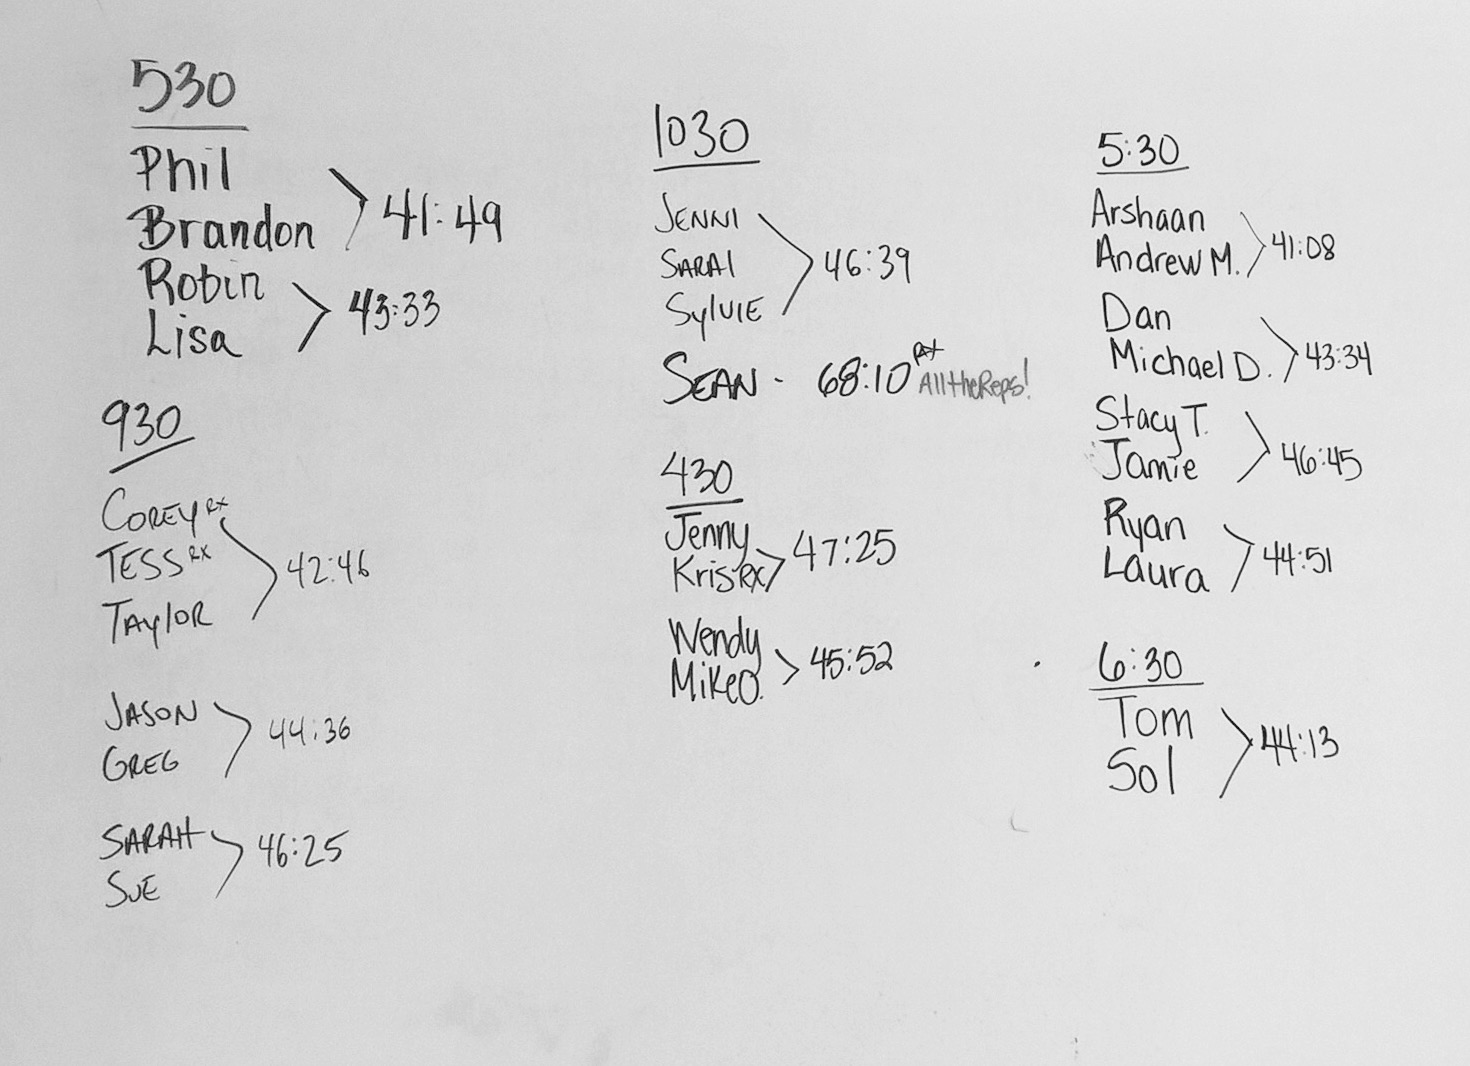 530
Phil
Brandon
41:49
Robin
Lisa
43:33
930
COREY RX
TESS RX
TAYLOR
42:46
JASON
GREG
44:36
SARAH
SUE
46:25
1030
JENNI
SARAI
SYLVIE
46:39
SEAN - 68:10 RX All the Reps!
430
Jenny
Kris RX
47:25
Wendy
Mike O.
45:52
5:30
Arshaan
Andrew M.
41:08
Dan
Michael D.
43:34
Stacy T.
Jamie
46:45
Ryan
Laura
44:51
6:30
Tom
Sol
44:13